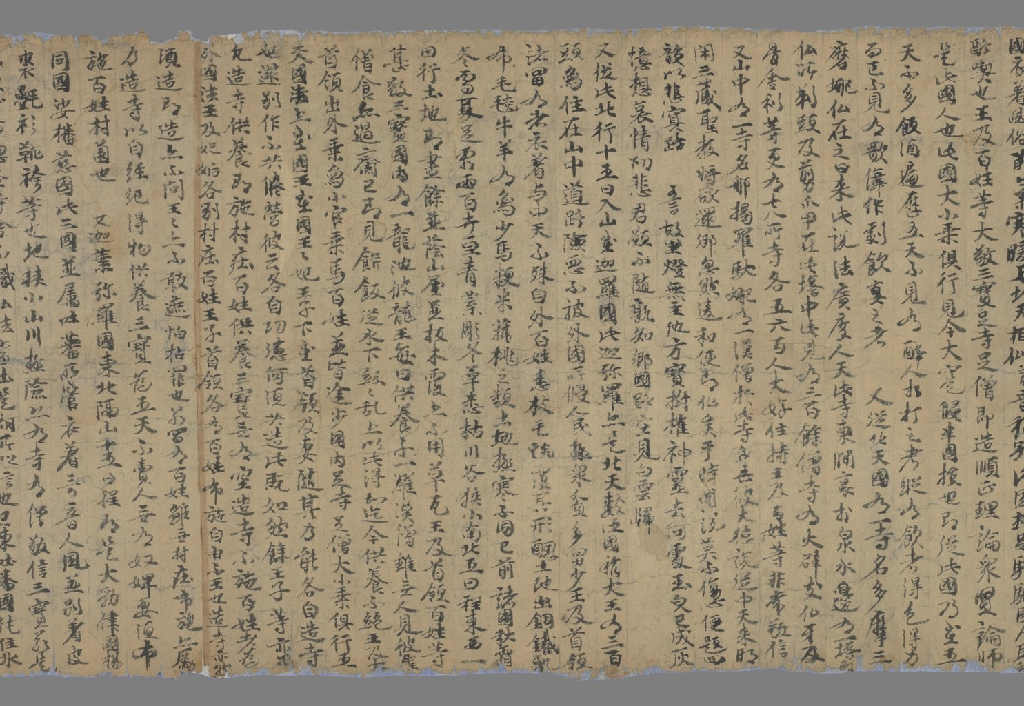 國衣着風俗節氣寒暖与北天相似言音稍別此國極足駱駝國人取乳
酪喫也王及百姓等大敬三寶足寺足僧即造順正理論衆賢論師
是此國人也此國大小乘俱行見今大寔侵半國損也即從此國乃至五
天不多飲酒遍歷五天不見有醉人相打之者縱有飲者得色得力
而已不見有歌儛作劇飲宴之者　又從北天國有一寺名多摩三
磨娜仏在之日來此說法廣度人天此寺東澗裏於泉水邊有一塔而
仏所剃頭及剪爪甲在此塔中此見有三百餘僧寺有大辟支仏牙及
骨舍利等更有七八所寺各五六百人大好住持王及百姓等非常敬信
又山中有一寺名那揭羅馱娜有一漢僧於此寺身亡彼大德說從中天來明
閑三藏聖教將欲還鄉忽然違和便即化矣于時聞說莫不傷心便題四
韻以悲冥路　五言　故里燈無主他方寶樹摧神靈去何處玉皃已成灰
憶想哀情切悲君願不隨孰知鄉國路空見白雲歸
又從此北行十五日入山至迦羅國此迦弥羅亦是北天數此國稍大王有三百
頭象住在山中道路險惡不被外國所侵人民極衆貧多富少王及首領
諸富有者衣着与中天不殊自外百姓悉被毛毯覆其形醜土地出銅鐵
布毛毯牛羊有象少馬粳米蒲桃之類土地極寒不同已前諸國秋霜
冬雪夏足霜雨百卉亘青葉彫冬草悉枯川谷狹小南北五日程東西一
日行土地即盡餘並蔭山屋並板木覆亦不用草瓦王及首領百姓等
甚敬三寶國內有一龍池彼龍王每日供養不一羅漢僧雖無人見彼聖
僧食亦過齋已即見餅飯從水下紛紛亂上以此得知迄今供養不絕王及大
首領出外乘象小官乘馬百姓並皆途步國內足寺足僧大小乘俱行五
天國法上至國王至國王王妃王子下至首領及妻隨其力能各自造寺
也還別作不共修營彼云各自功德何須共造此既如然餘王子等亦尒
凡造寺供養即施村莊百姓供養三寶無有空造寺不施百姓者爲
外國法王及妃姤各別村莊百姓王子首領各有百姓布施自由不王也造寺亦然
須造即造亦不問王王亦不敢遮怕拈罪也若富有百姓雖無村莊布施亦勵
力造寺以自經紀得物供養三寶爲五天不賣人無有奴婢要須布
施百姓村薗也　又迦葉弥羅國東北隔山十五日程即是大勃律國楊
同國娑播慈國此三國並屬吐蕃所管衣着言音人風並別着皮
裘氎衫靴袴等也地狹小山川極險亦有寺有僧敬信三寶若是